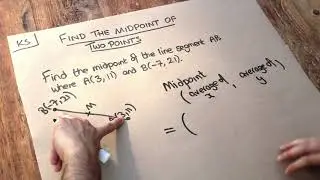 K5
FIND THE MIDPOINT OF
TWO POINTS
Find the midpoint of the line segment AB,
where A(3,11) and B(-7,21).
Midpoint
(average of x, average of y)
B(-7,21)
M
(3,11)
= (